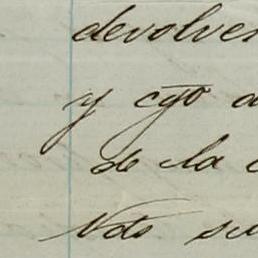 devolver
y cyo a
de la c
Vdo su